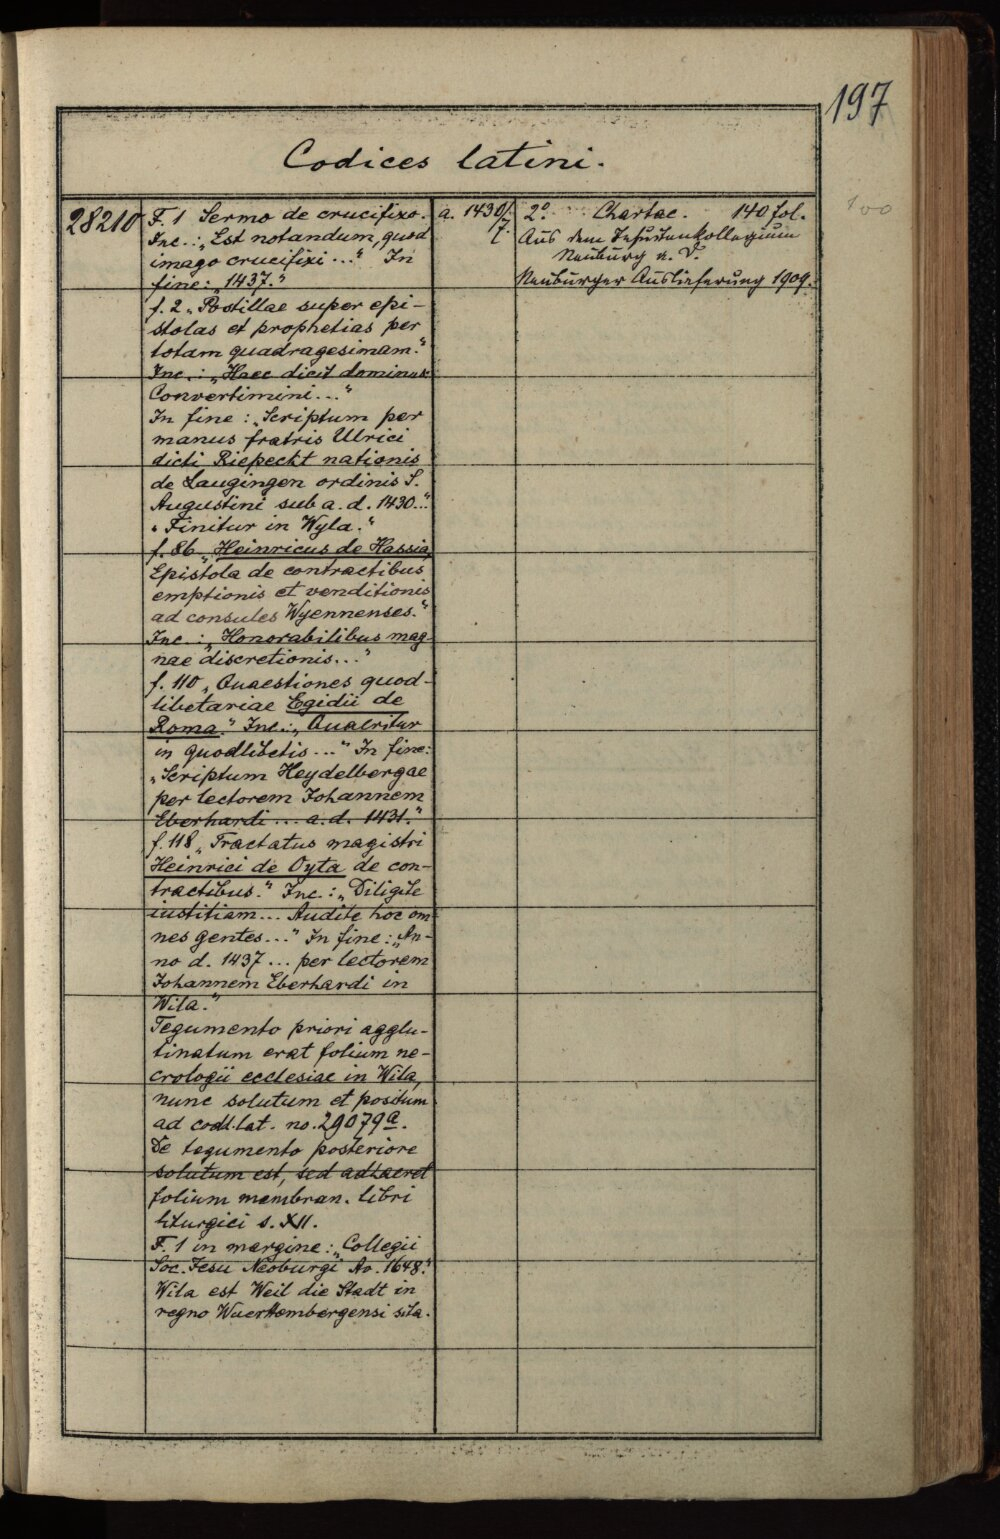 197
Codices latini.
100
28210
F. 1 Sermo de crucifixo.
Inc.: „Est notandum, quod
imago crucifixi ..." In
fine: „1437."
f. 2 „Postillae super epi-
stolas et prophetias per
totam quadragesimam."
Inc.: „Haec dicit dominus
Convertimini ..."
In fine: „Scriptum per
manus fratris Ulrici
dicti Riepecht nationis
de Laugingen ordinis S.
Augustini sub a. d. 1430..."
„Finitur in Wyla."
f. 86 „Heinricus de Hassia,
Epistola de contractibus
emptionis et venditionis
ad consules Wyennenses."
Inc.: „Honorabilibus mag
nae discretionis ..."
f. 110 „Quaestiones quod-
libetariae Egidii de
Roma." Inc.: „Quaeritur
in quodlibetis ..." In fine:
„Scriptum Heydelbergae
per lectorem Johannem
Eberhardi ... a. d. 1431."
f. 118 „Tractatus magistri
Heinrici de Oyta de con-
tractibus." Inc.: „Diligite
iustitiam ... Audite hoc om
nes gentes ..." In fine: „An-
no d. 1437 ... per lectorem
Johannem Eberhardi in
Wila."
Tegumento priori agglu-
tinatum erat folium ne-
crologii ecclesiae in Wila,
nunc solutum et positum
ad codd. lat. no. 29079a.
De tegumento posteriore
solutum est, sed adhaeret
folium membran. libri
liturgici s. XII.
F. 1 in margine: „Collegii
Soc. Jesu Neoburgi Ao. 1648."
Wila est Weil die Stadt in
regno Wuerttembergensi sita.
a. 1430/
7.
2° Chartac. 140 fol.
Aus dem Jesuitenkollegium
Neuburg a. D.
Neuburger Auslieferung 1909.